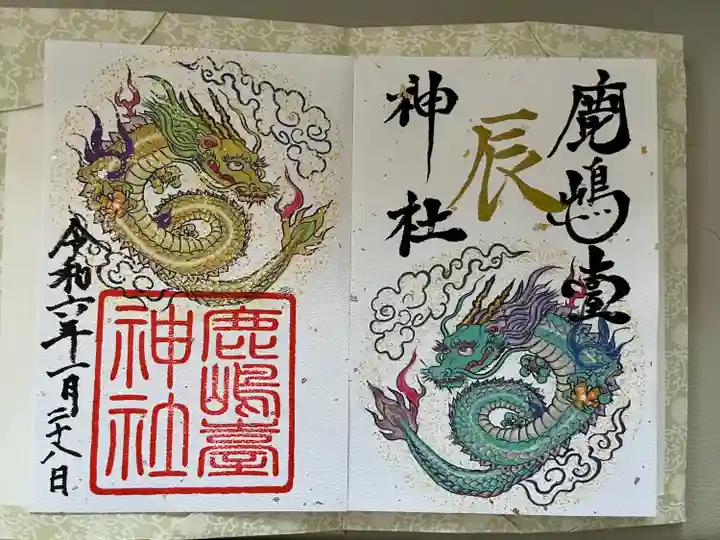 鹿嶋臺
辰
神社
鹿嶋臺
神社
令和六年一月二十八日